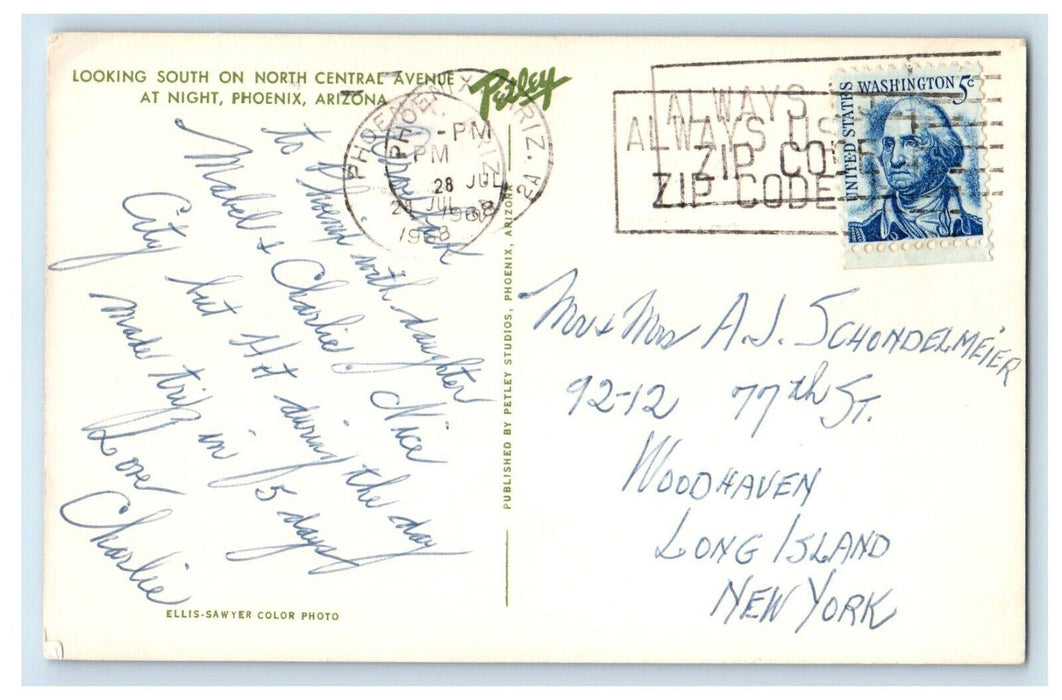 LOOKING SOUTH ON NORTH CENTRAL AVENUE
AT NIGHT, PHOENIX, ARIZONA
Petley
PHOENIX, ARIZ. 2A
-PM
28 JUL
1968
PHOENIX ARIZ
PM
JUL
1968
ALWAYS
ZIP CODE
ALWAYS USE
ZIP CODE
UNITED STATES
WASHINGTON 5c
to Phoenix with daughter
Mabel & Charlie. Nice
City but Hot during the day
made trip in 5 days
Love
Charlie
PUBLISHED BY PETLEY STUDIOS, PHOENIX, ARIZONA
Mr & Mrs A.J. SCHONDELMEIER
92-12 77th ST.
WOODHAVEN
LONG ISLAND
NEW YORK
ELLIS-SAWYER COLOR PHOTO